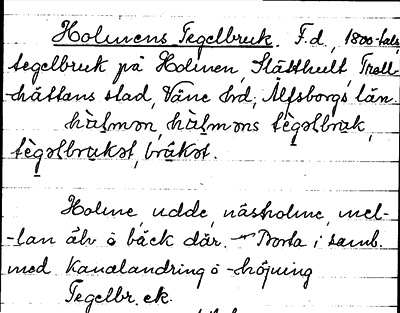 Holmens Tegelbruk. F.d., 1800-tals
tegelbruk på Holmen, Slätthult, Troll-
-hättans stad, Väne hrd, Älfsborgs län.
hòlmən, hòlmens tègəlbruk,
tègəlbrukət, brúkət.
Holme, udde, näsholme, mel-
-lan älv o bäck där. - Borta i samb.
med Kanalandring o -höjning
Tegelbr. ek.